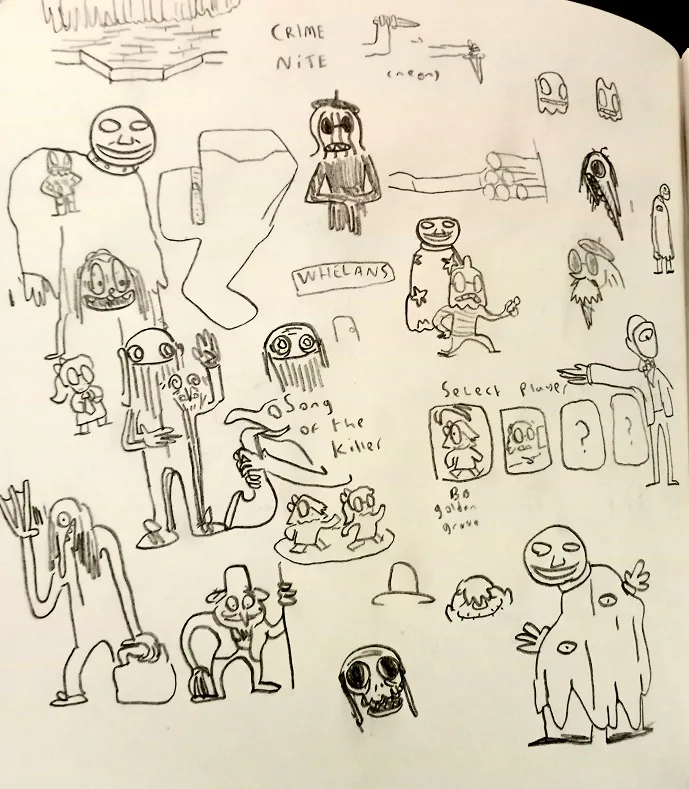 CRIME
NITE
(neon)
WHELANS
Song
of the
killer
Select Player
? ?
Bo
golden
grove